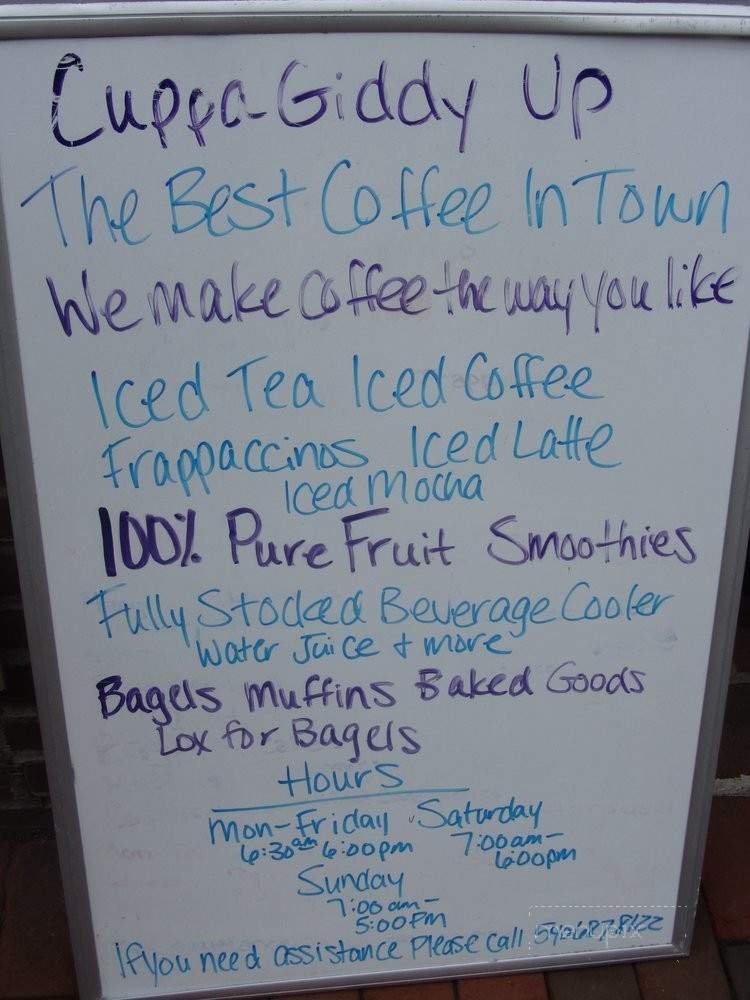 Cuppa Giddy Up
The Best Coffee In Town
We make Coffee the way you like
Iced Tea Iced Coffee
Frappaccinos Iced Latte
Iced Mocha
100% Pure Fruit Smoothies
Fully Stocked Beverage Cooler
Water Juice + more
Bagels Muffins Baked Goods
Lox for Bagels
Hours
Mon-Friday Saturday
6:30am 6:00pm 7:00am-
6:00pm
Sunday
7:00am-
5:00pm
If you need assistance Please call